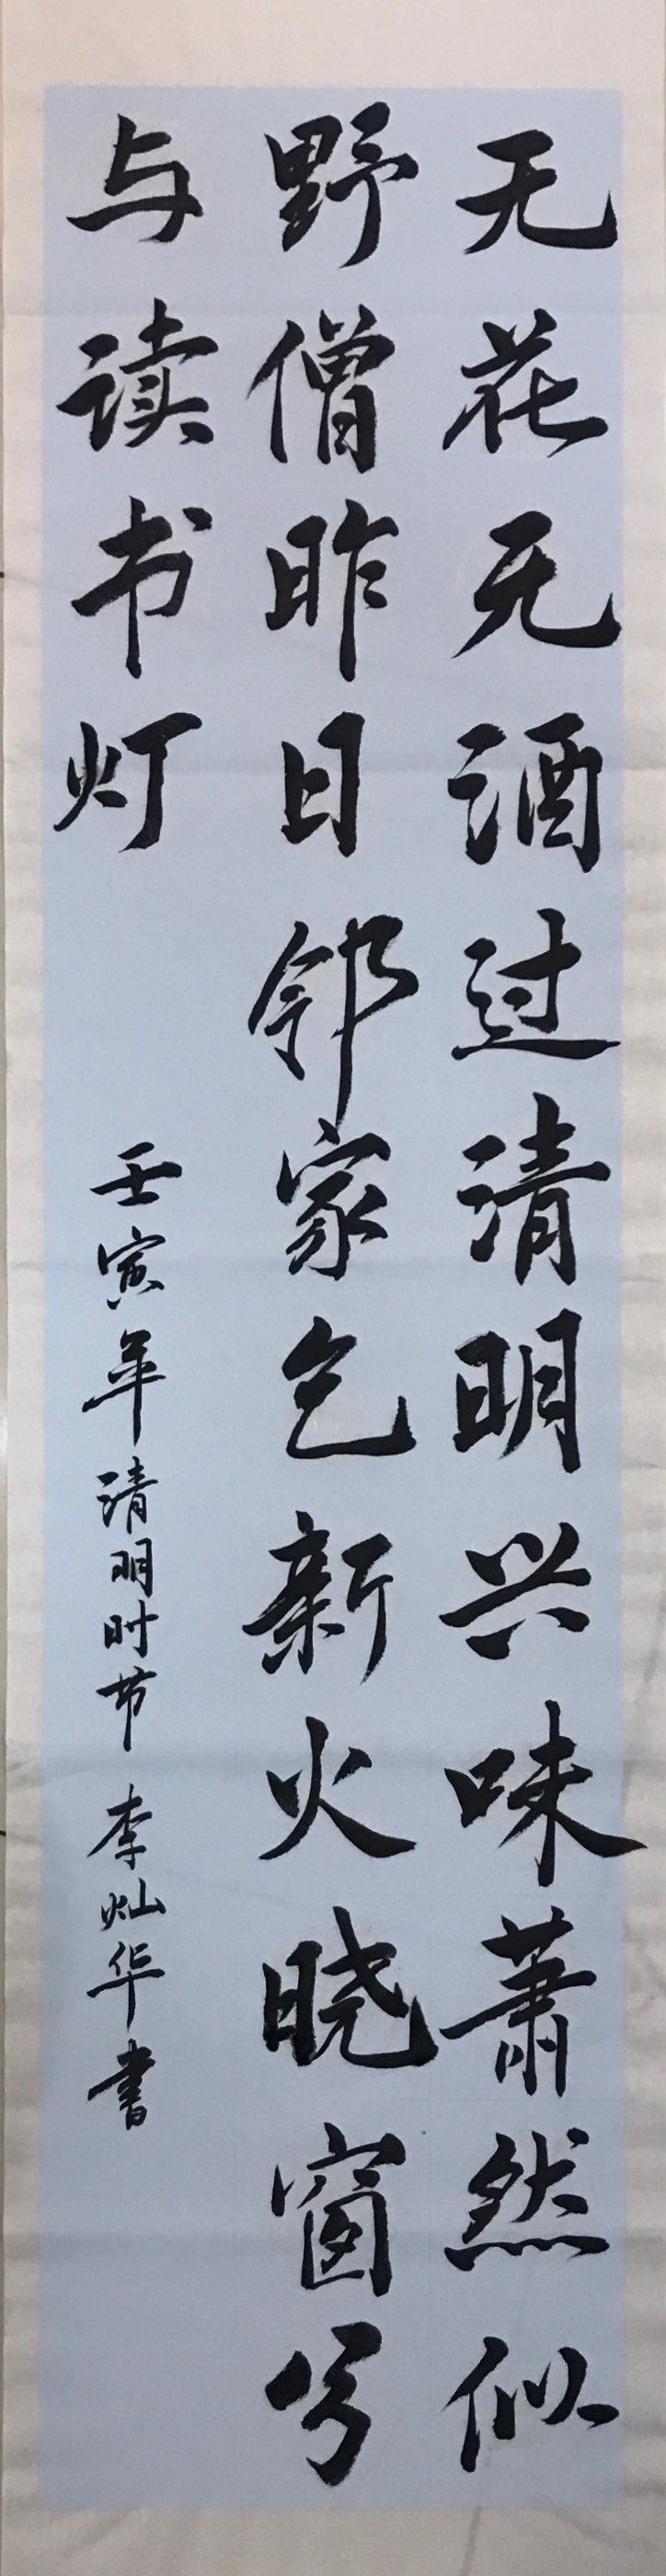 无花无酒过清明兴味萧然似
野僧昨日邻家乞新火晓窗分
与读书灯
壬寅年清明时节 李灿华書